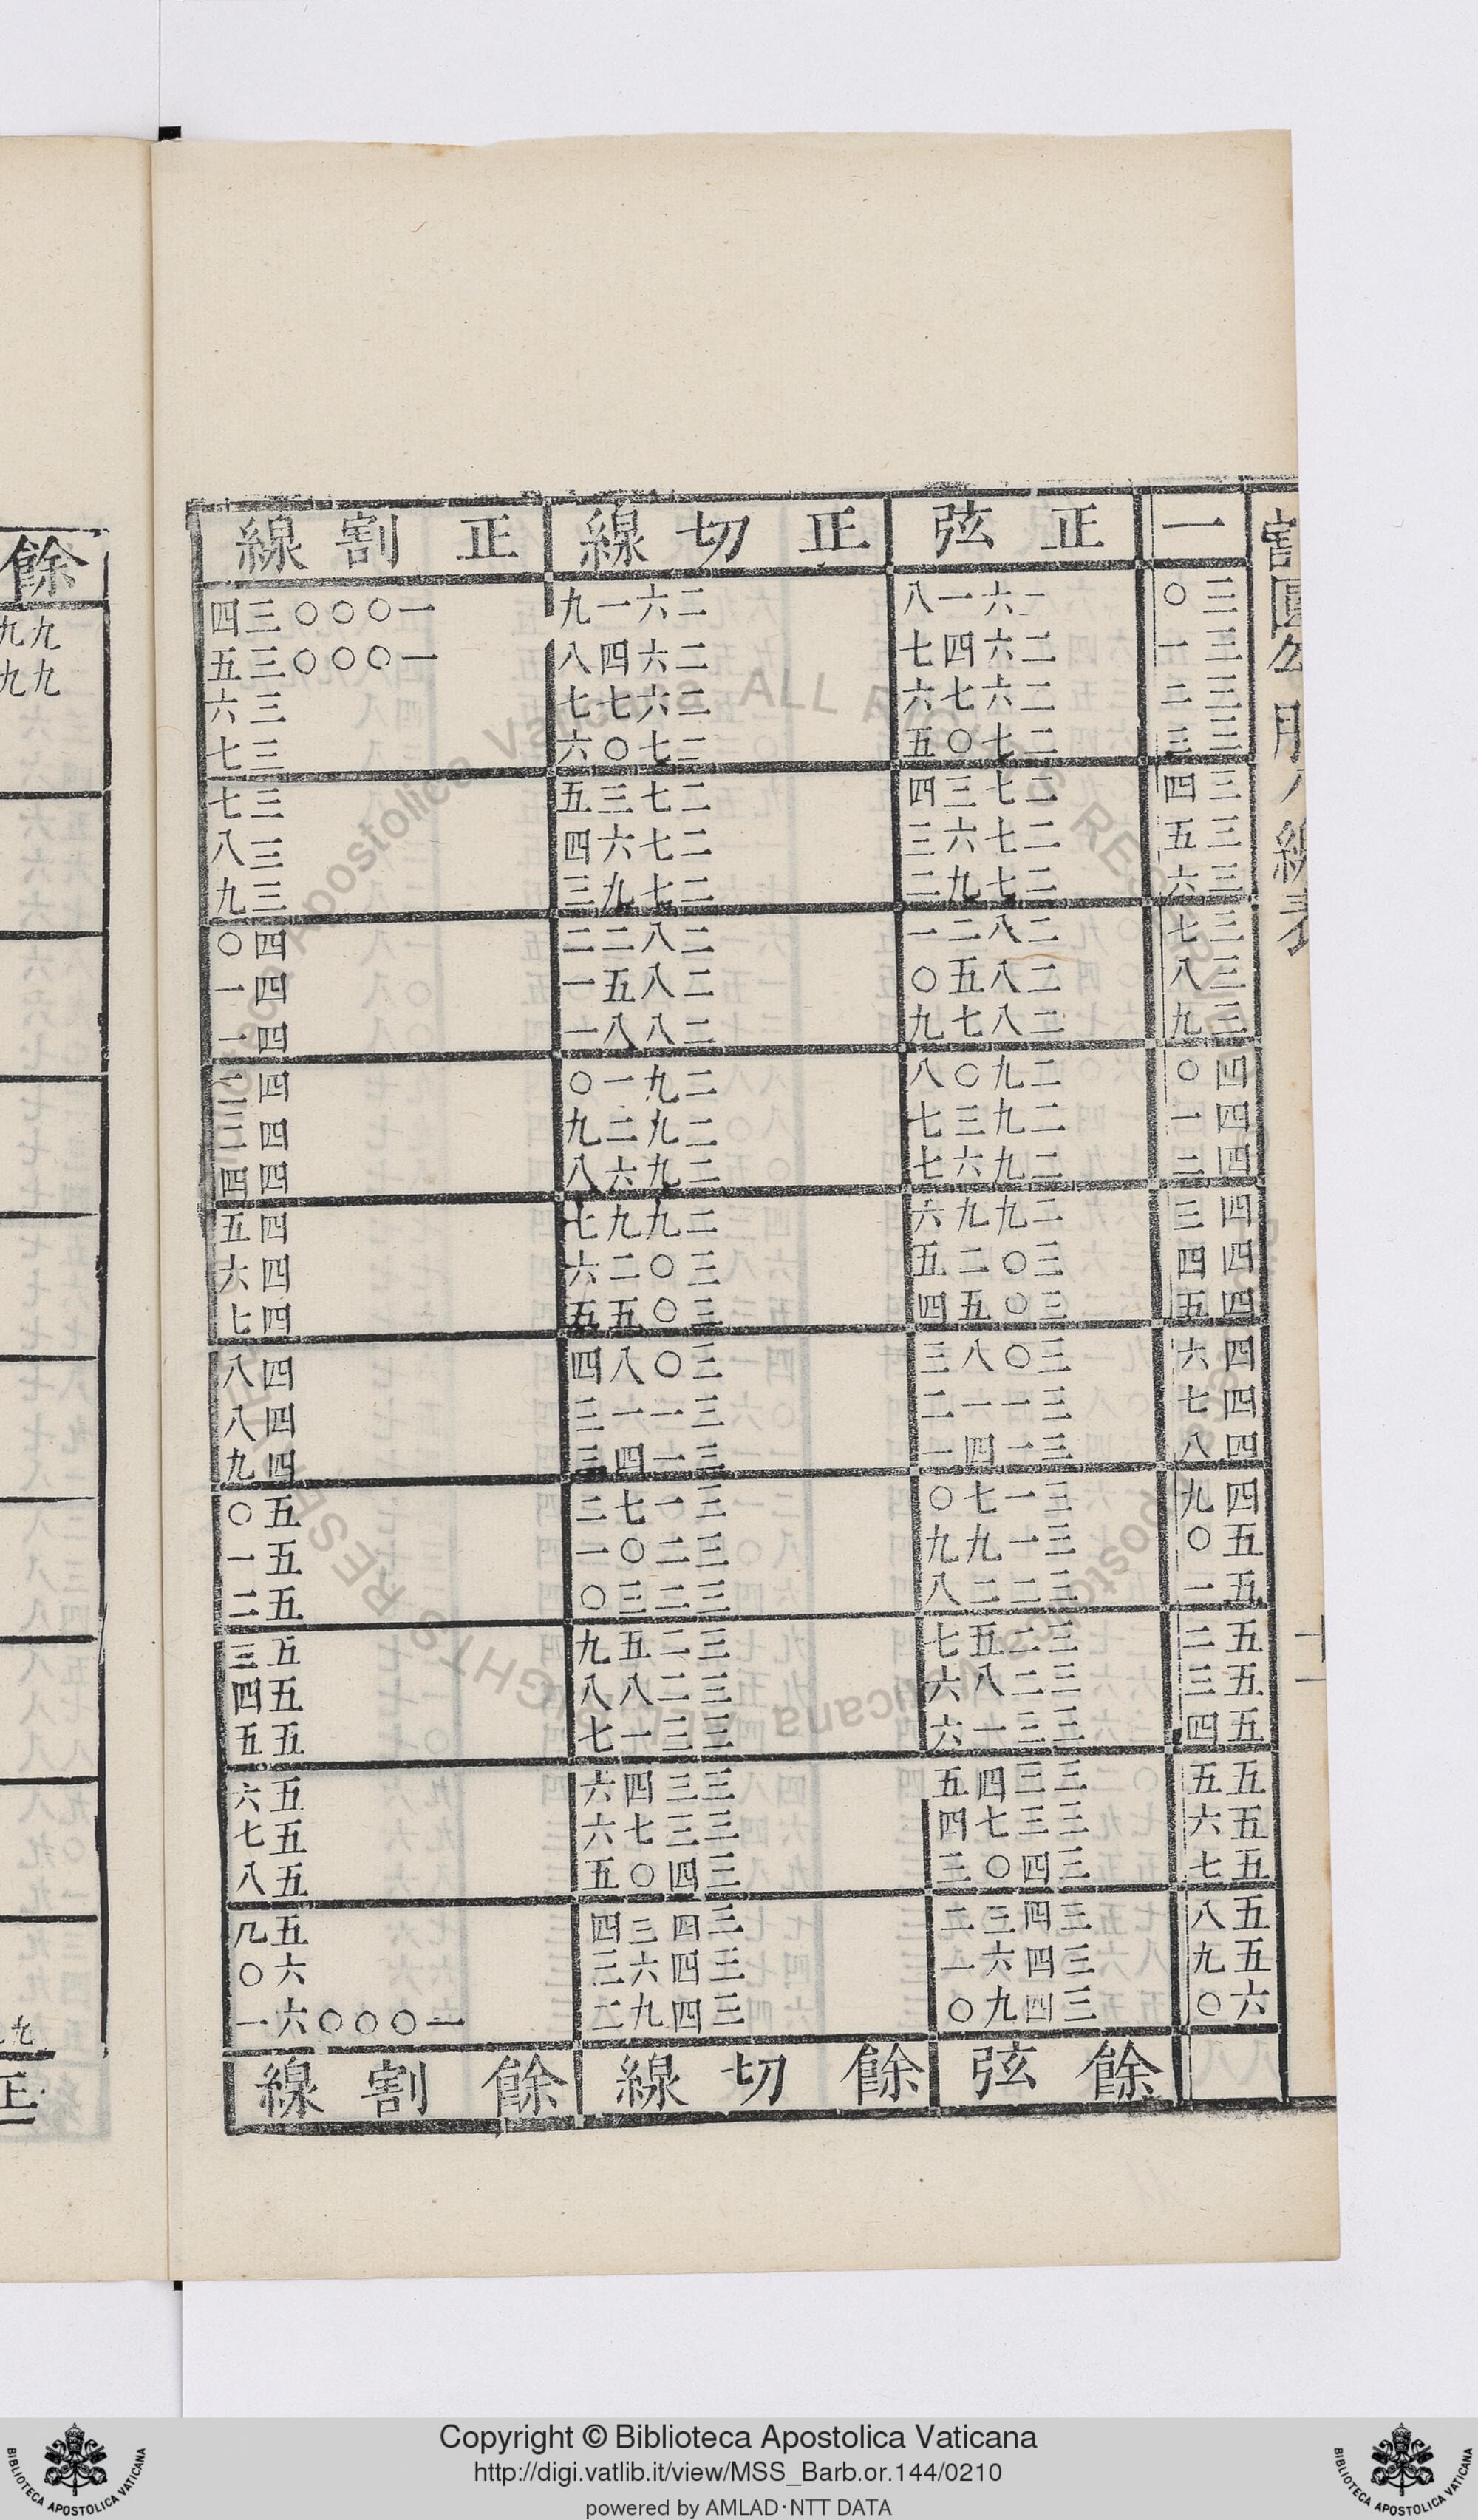 割圜勾股八線表
十一
一 正弦 正切線 正割線
三〇 二六一八 二六一九 一〇〇〇三四
三一 二六四七 二六四八 一〇〇〇三五
三二 二六七六 二六七七 三六
三三 二七〇五 二七〇六 三七
三四 二七三四 二七三五 三七
三五 二七六三 二七六四 三八
三六 二七九二 二七九三 三九
三七 二八二一 二八二二 四〇
三八 二八五〇 二八五一 四一
三九 二八七九 二八八一 四一
四〇 二九〇八 二九一〇 四二
四一 二九三七 二九二九 四三
四二 二九六七 二九六八 四四
四三 二九九六 二九九七 四五
四四 三〇二五 三〇二六 四六
四五 三〇五四 三〇五五 四七
四六 三〇八三 三〇八四 四八
四七 三一一二 三一一三 四八
四八 三一四一 三一四三 四九
四九 三一七〇 三一七二 五〇
五〇 三一九九 三二〇一 五一
五一 三二二八 三二三〇 五二
五二 三二五七 三二五九 五三
五三 三二八六 三二八八 五四
五四 三三一六 三三一七 五五
五五 三三四五 三三四六 五六
五六 三三七四 三三七六 五七
五七 三四〇三 三四〇五 五八
五八 三四三二 三四三四 五九
五九 三四六一 三四六三 六〇
六〇 三四九〇 三四九二 一〇〇〇六一
餘弦 餘切線 餘割線
餘
九九
九九
九
正
Copyright © Biblioteca Apostolica Vaticana
http://digi.vatlib.it/view/MSS_Barb.or.144/0210
powered by AMLAD·NTT DATA
BIBLIOTECA APOSTOLICA VATICANA
BIBLIOTECA APOSTOLICA VATICANA